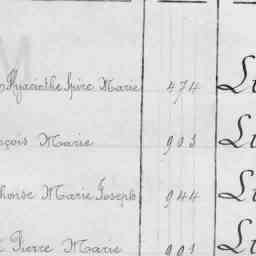 Hyacinthe Spire Marie 474 L
nçois Marie 903 L
honse Marie Joseph 944 L
Pierre Marie 901 L